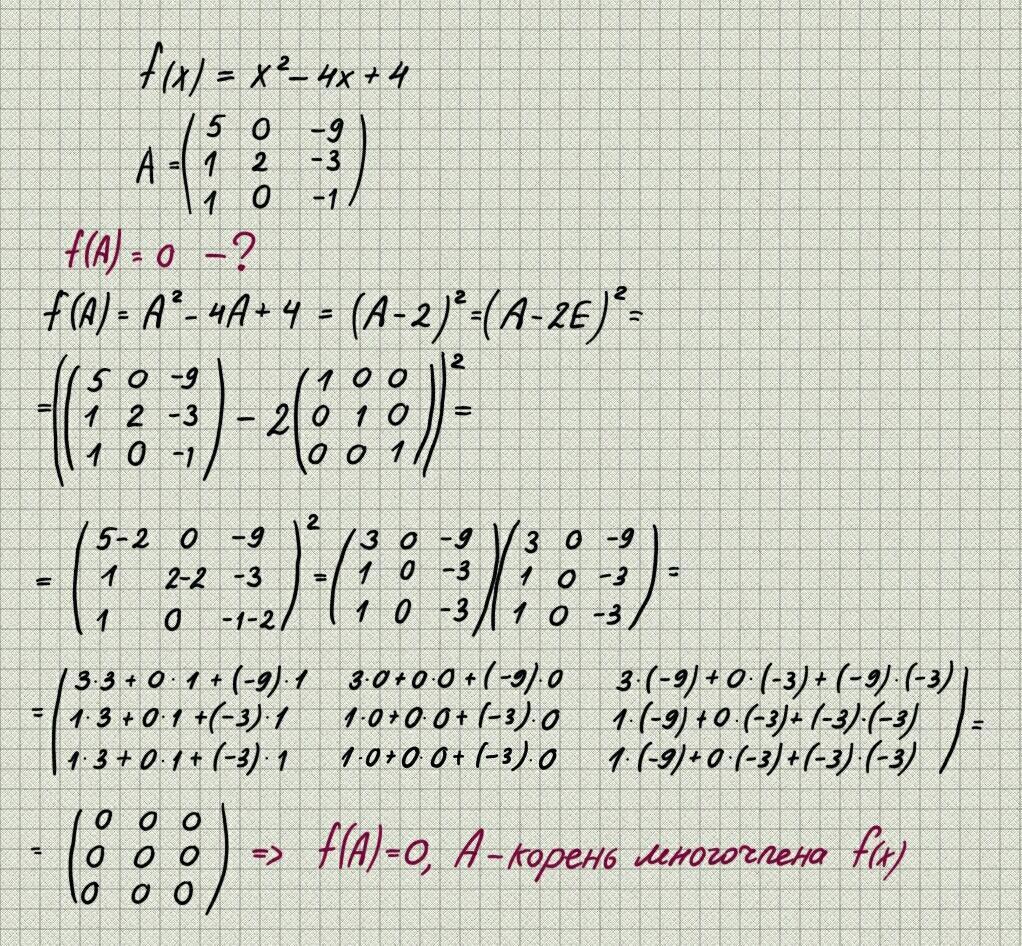 f(x) = x² - 4x + 4
A = ( 5 0 -9
1 2 -3
1 0 -1 )
f(A) = 0 - ?
f(A) = A² - 4A + 4 = (A - 2)² = (A - 2E)² =
= (( 5 0 -9 1 0 0 ))²
1 2 -3 ) - 2 ( 0 1 0 =
1 0 -1 0 0 1
= ( 5-2 0 -9 )² = ( 3 0 -9 ) ( 3 0 -9 ) =
1 2-2 -3 1 0 -3 1 0 -3
1 0 -1-2 1 0 -3 1 0 -3
= ( 3·3 + 0·1 + (-9)·1 3·0 + 0·0 + (-9)·0 3·(-9) + 0·(-3) + (-9)·(-3)
1·3 + 0·1 + (-3)·1 1·0 + 0·0 + (-3)·0 1·(-9) + 0·(-3) + (-3)·(-3)
1·3 + 0·1 + (-3)·1 1·0 + 0·0 + (-3)·0 1·(-9) + 0·(-3) + (-3)·(-3) ) =
= ( 0 0 0
0 0 0 => f(A) = 0, A - корень многочлена f(x)
0 0 0 )